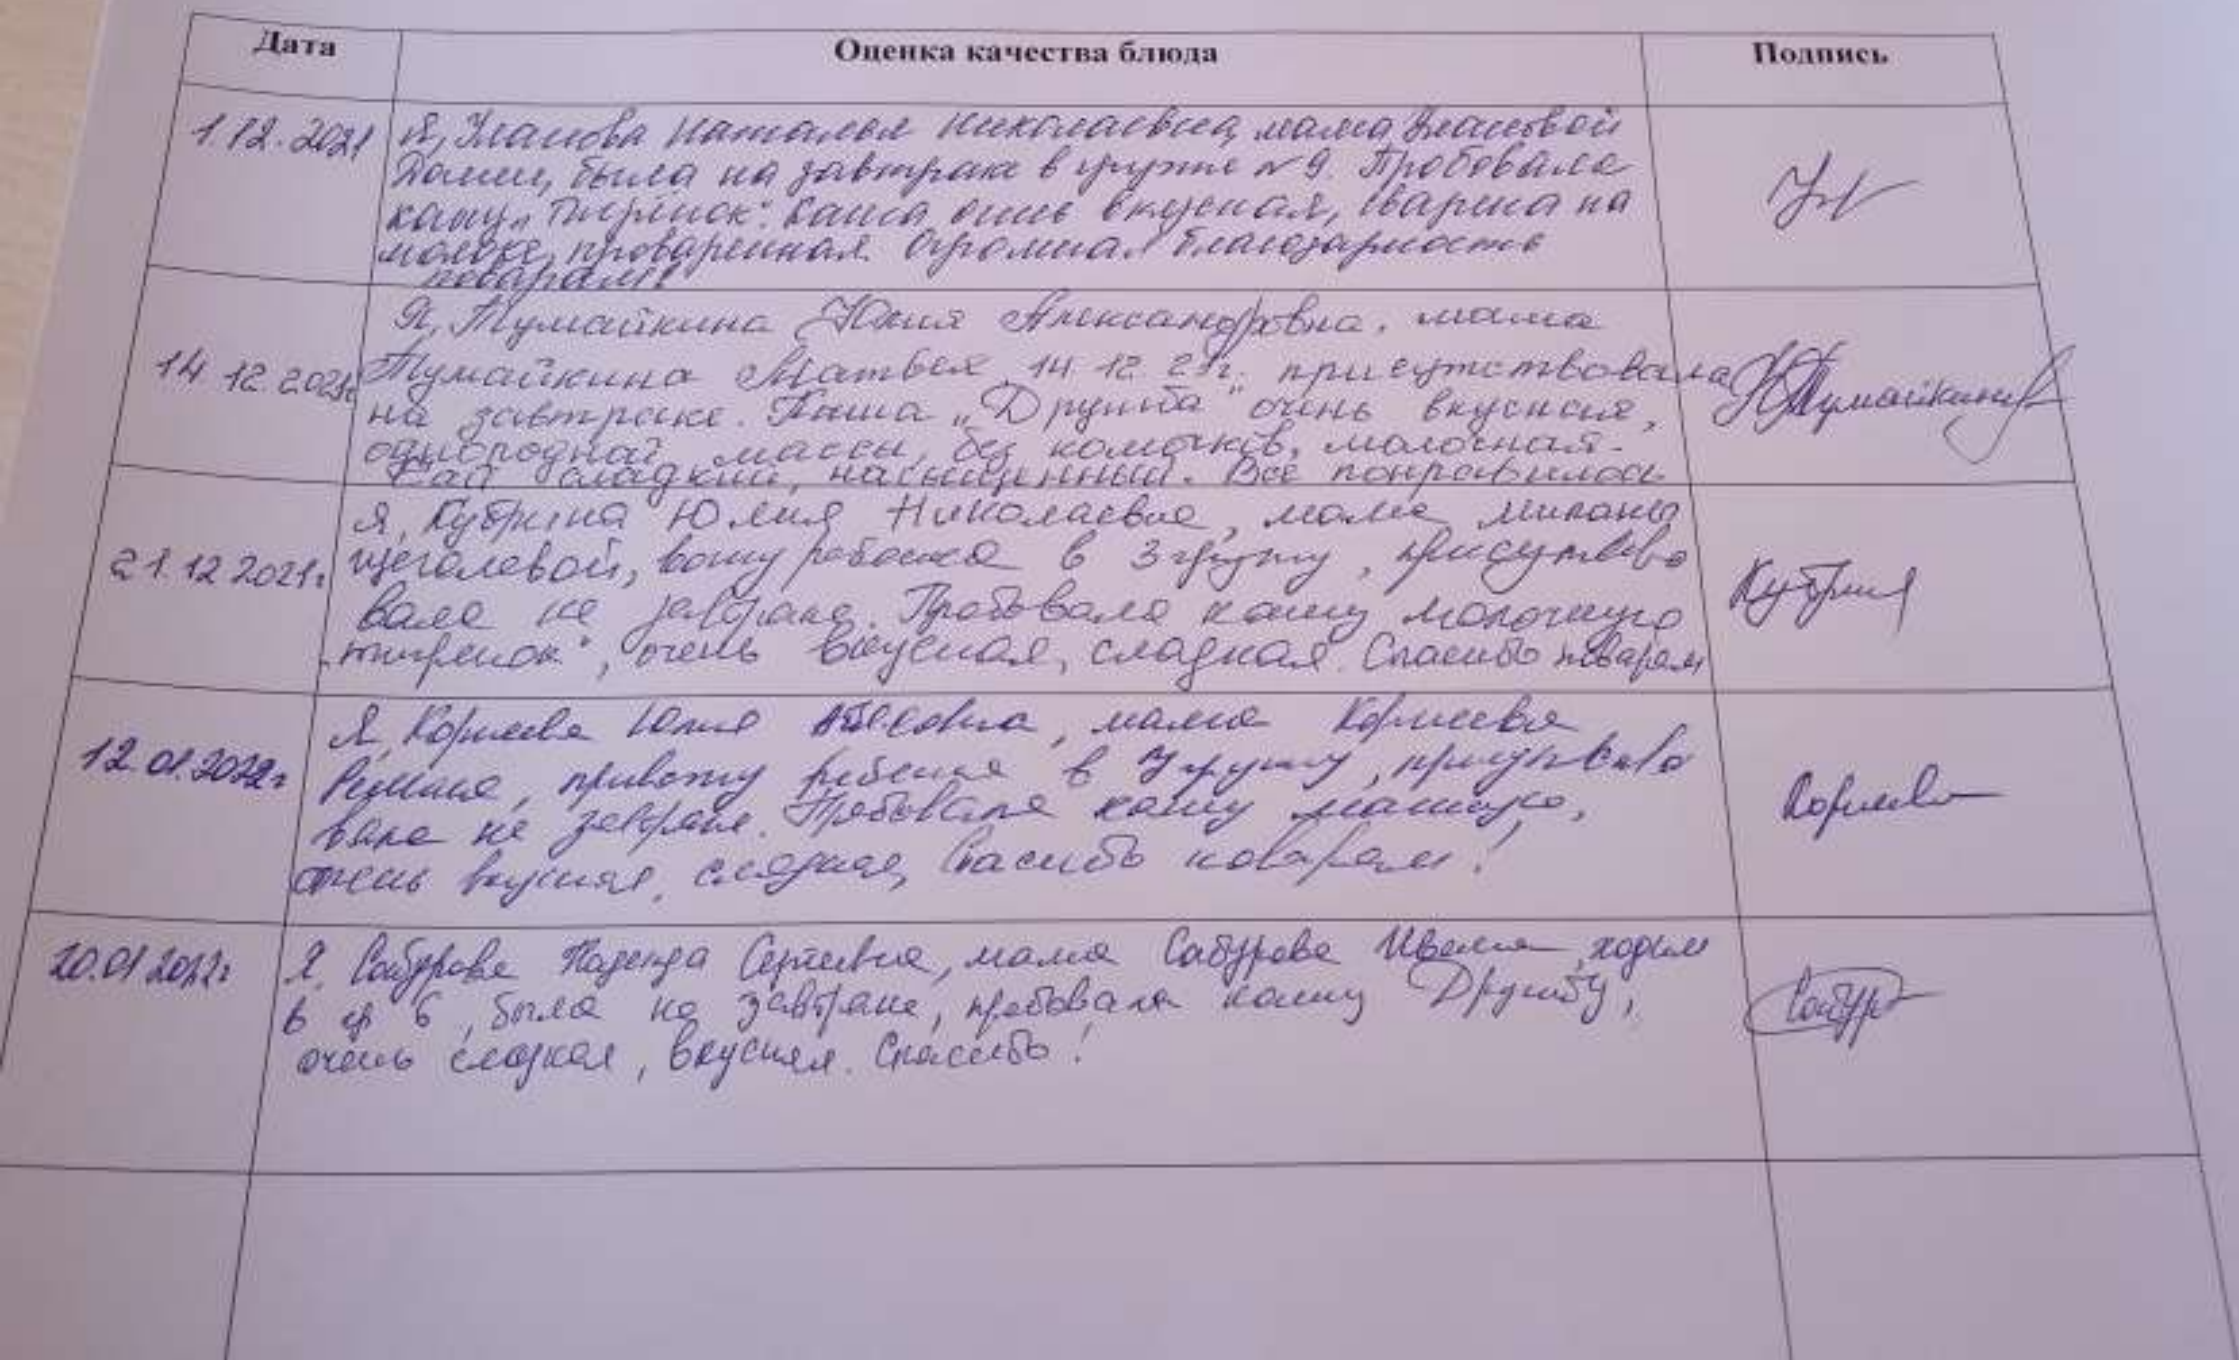 Дата Оценка качества блюда Подпись
1.12.2021 Я, Уланова Наталья Николаевна, мама Улановой
Даши, была на завтраке в группе №9. Пробовала
кашу „Тигрёнок". Каша очень вкусная, сварена на
молоке, проваренная. Огромная благодарность
поварам!
Я, Тумайкина Юлия Александровна, мама
14.12.2021г Тумайкина Матвея 14.12.21г. присутствовала Тумайкина
на завтраке. Каша „Дружба" очень вкусная,
однородной массы, без комочков, молочная.
Чай сладкий, насыщенный. Все понравилось
Я, Кубрина Юлия Николаевна, мама Миланы
21.12.2021г Щеголевой, вожу ребенка в 3 группу, присутство Кубрина
вала на завтраке. Пробовала кашу молочную
„тигрёнок", очень вкусная, сладкая. Спасибо поварам
Я, Корнеева Юлия, мама Корнеева
12.01.2022г привожу ребенка в группу, присутство Корнеева
вала на завтраке. Пробовала кашу манную,
очень вкусная, сладкая, Спасибо поварам!
20.01.2022г Я, Сабурова Надежда Сергеевна, мама Сабурова Ивана, ходим
в гр 6, была на завтраке, пробовала кашу Дружбу, Сабур
очень сладкая, вкусная. Спасибо!